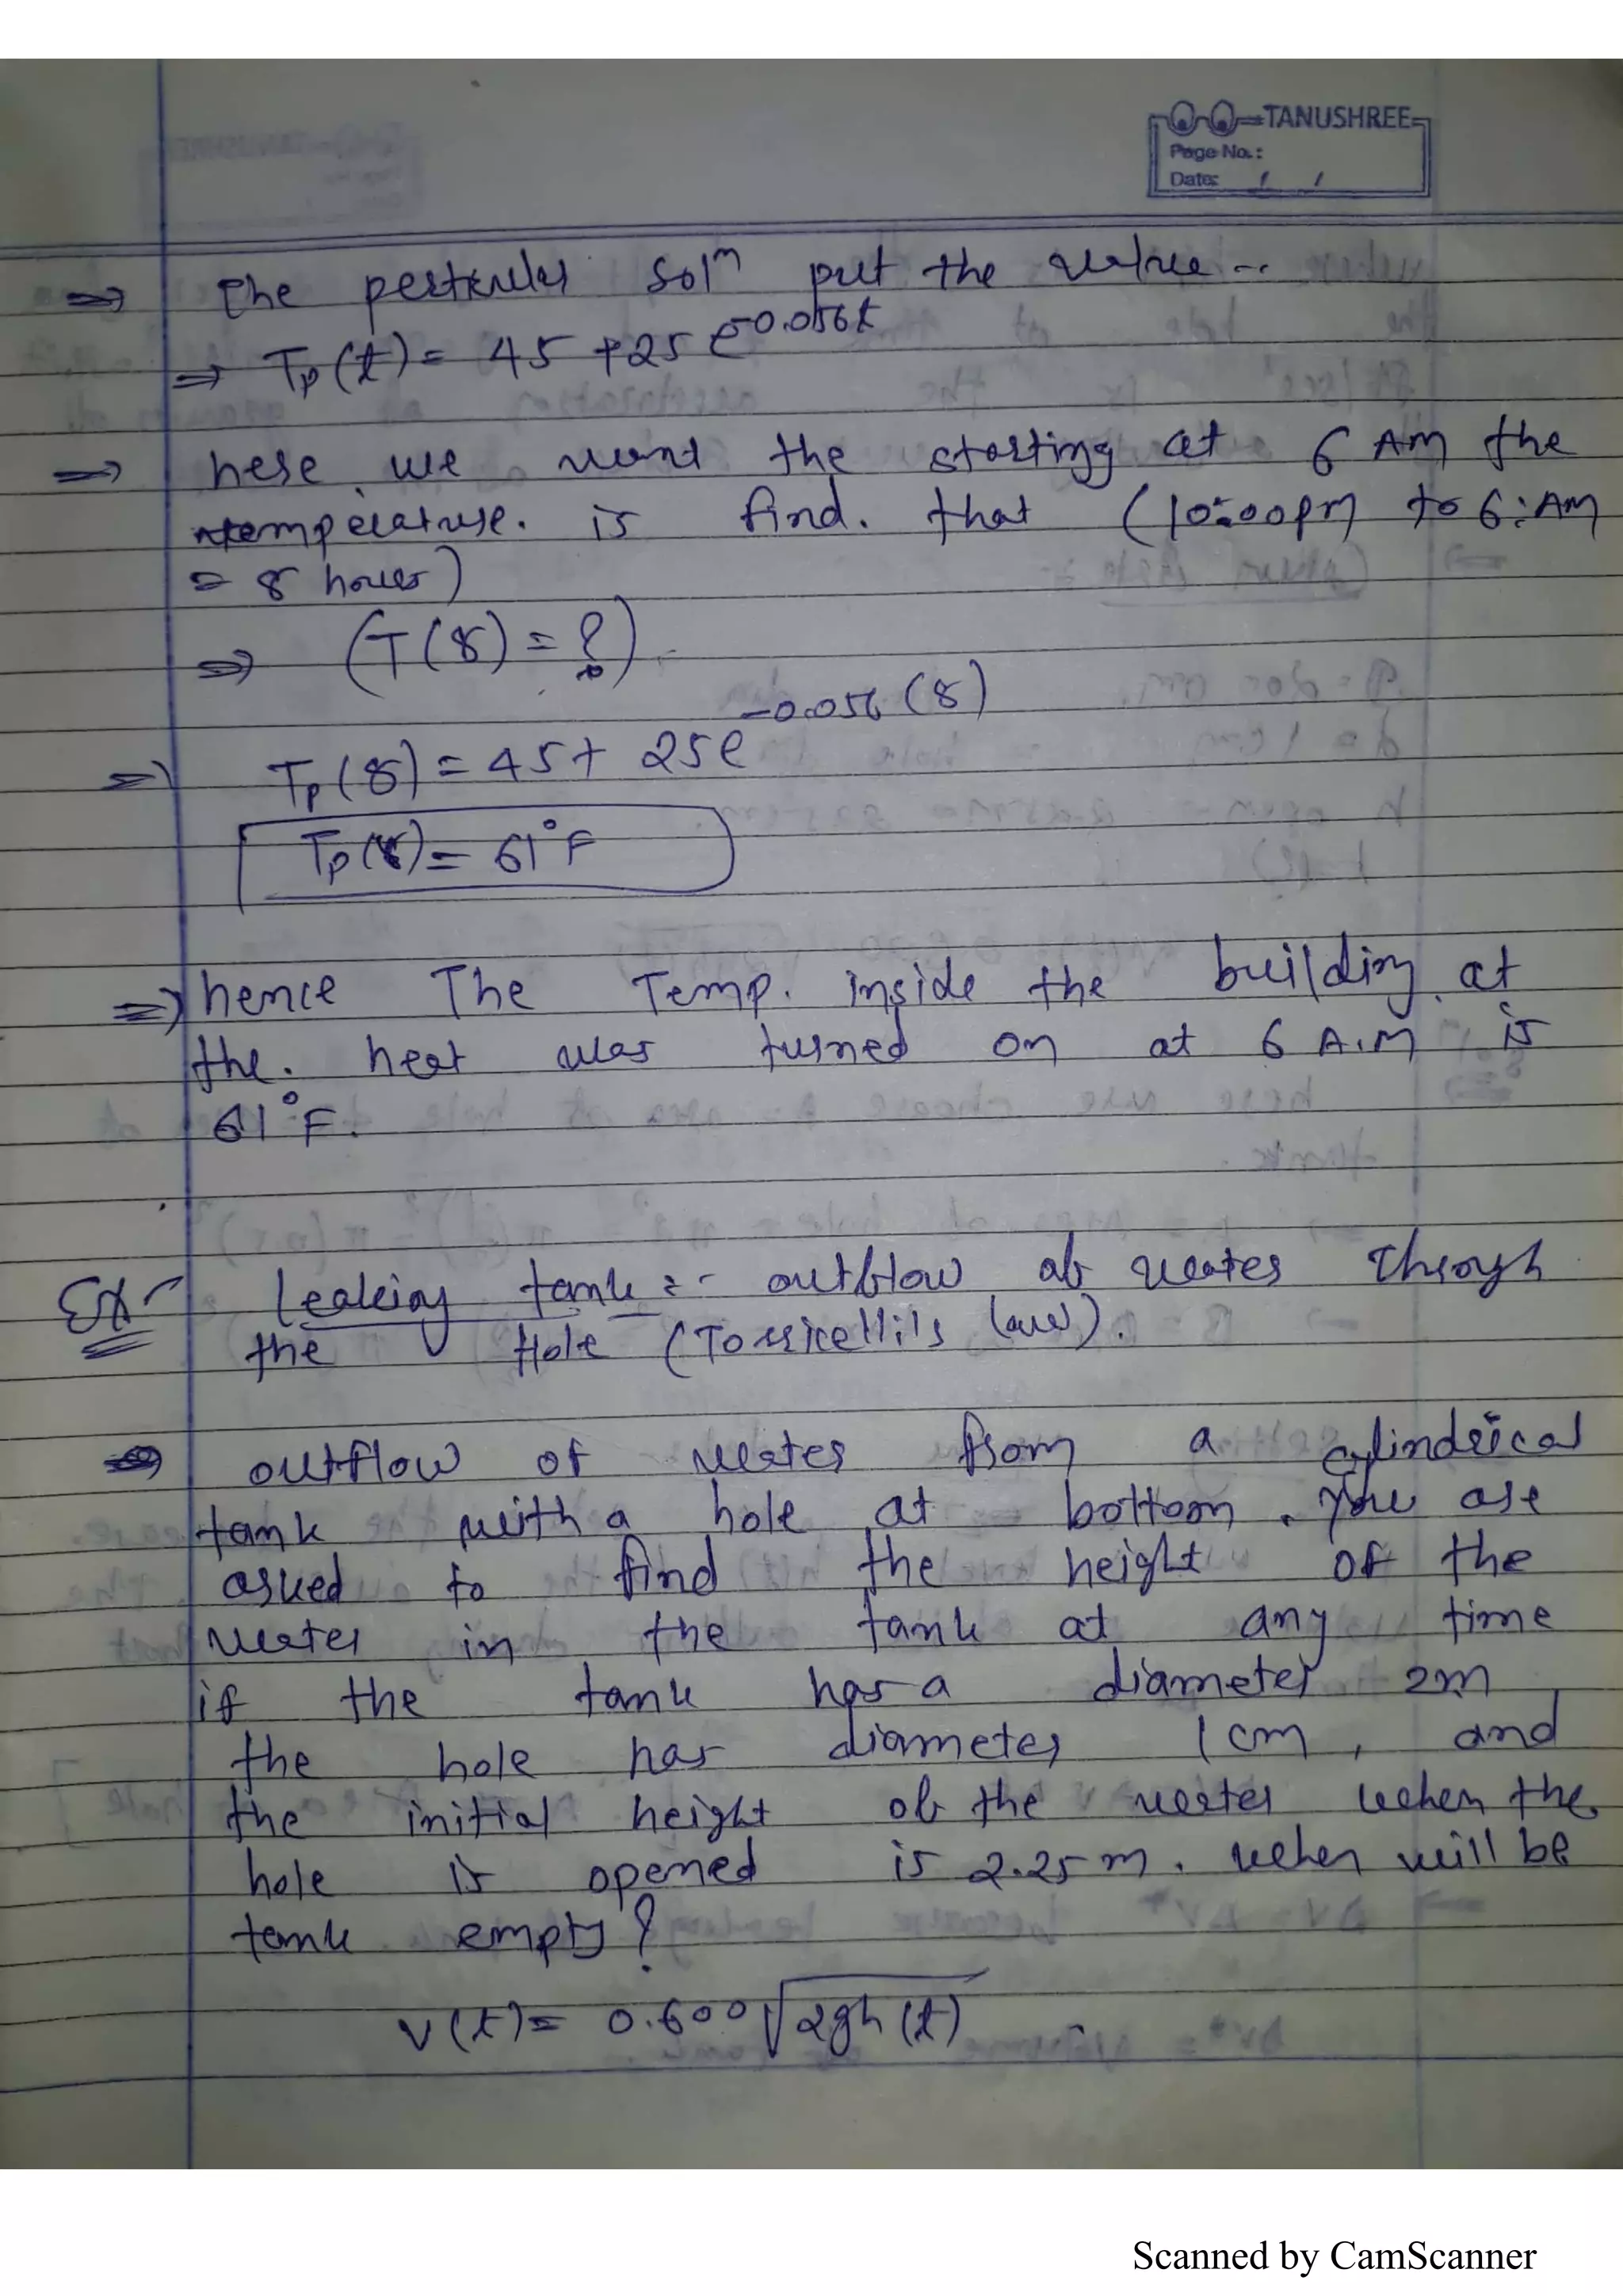 TANUSHREE
Page No.:
Date: / /
⇒ The perticular solⁿ put the value --
⇒ Tp(t) = 45 + 25 e^-0.056t
⇒ here we want the starting at 6 AM the
temperature. is find. that (10:00pm to 6:AM
= 8 hours)
⇒ (T(8) = ?)
⇒ Tp(8) = 45 + 25e^-0.056(8)
Tp(8) = 61°F
⇒ hence The Temp. inside the building at
the. heat was turned on at 6 A.M is
61°F.
Ex- Leaking tank :- outflow of water through
the Hole (Torricelli's law).
⇒ outflow of water from a cylindrical
tank with a hole at bottom. you are
asked to find the height of the
water in the tank at any time
if the tank has a diameter 2m
the hole has diameter 1cm, and
the initial height of the water when the
hole is opened is 2.25m. when will be
tank empty?
v(t) = 0.600√2gh(t)
Scanned by CamScanner